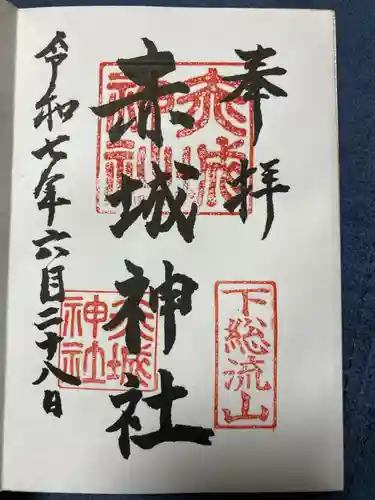 奉拝
下総流山
赤城神社
赤城神社
赤城神社
令和七年六月二十八日